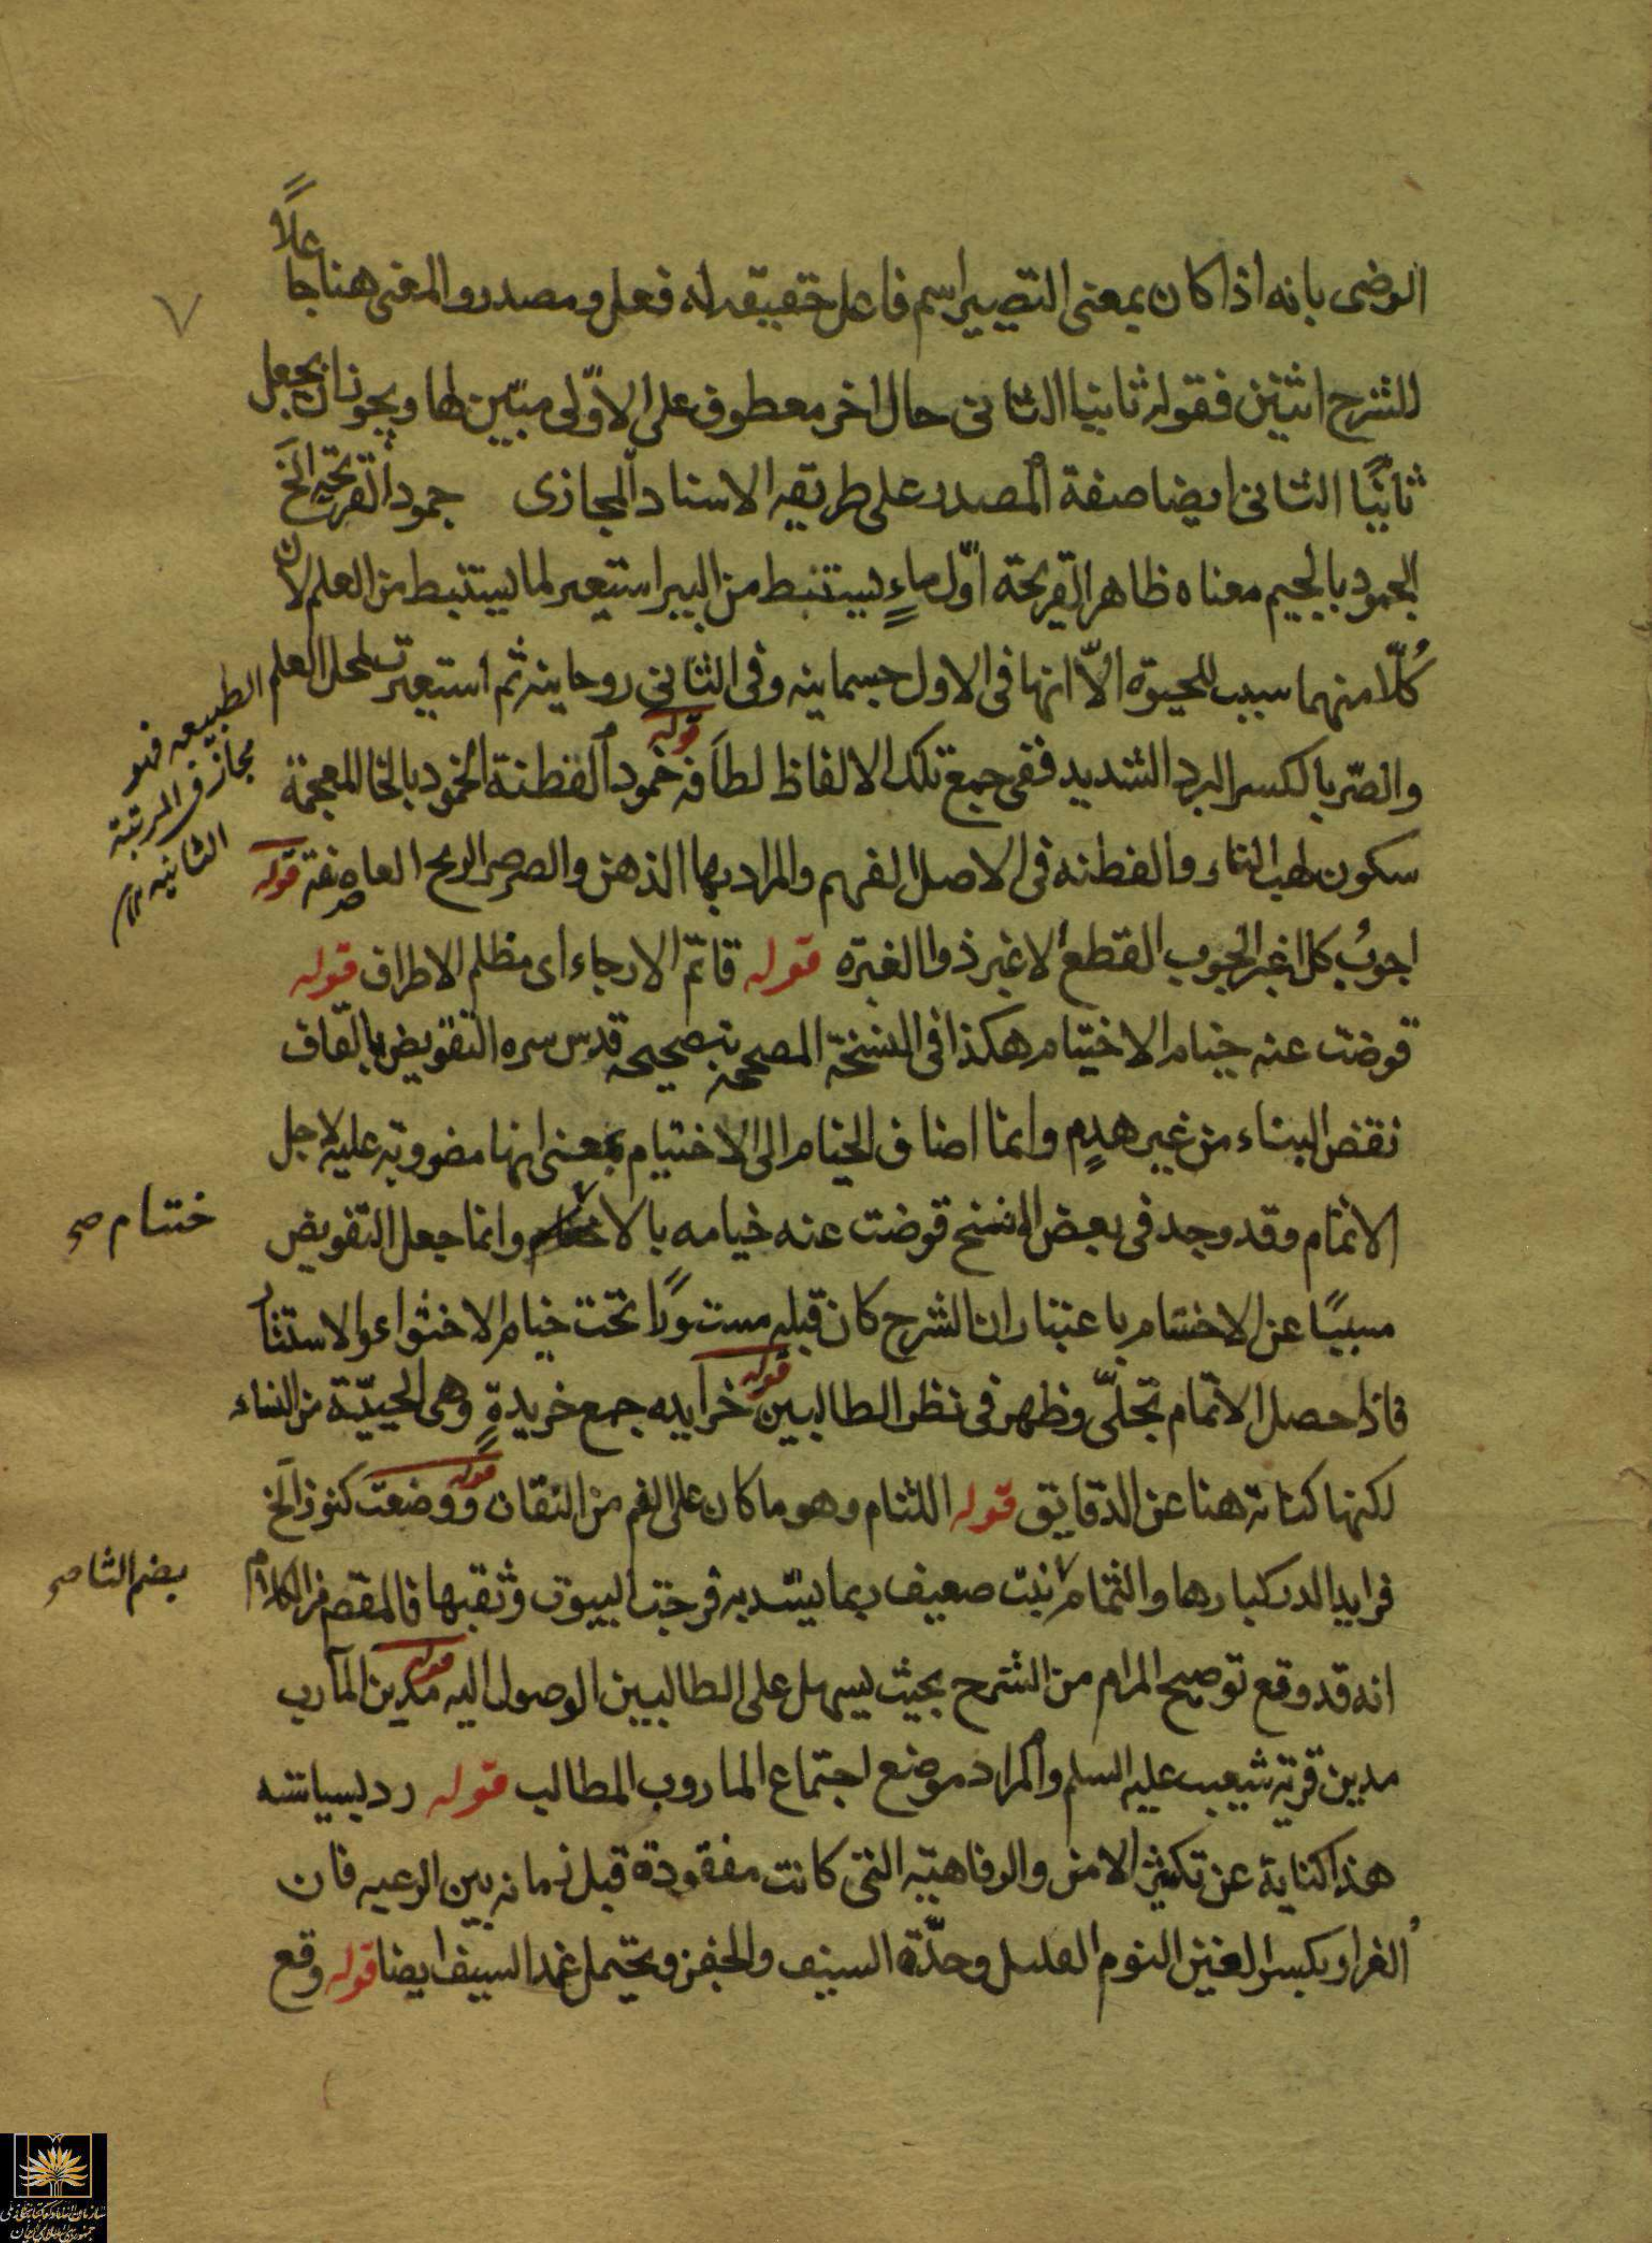 الرضى بانه اذا كان بمعنى التصيير اسم فاعل حقيقه له فعل و مصدر و المعنى هنا جاعلاً
للشرح اثنين فقوله ثانيا الثانى حال اخر معطوف على الاوّلى مبيّن لها و يجوز ان يجعل
ثانيًا الثانى ايضا صفة المصدر على طريقه الاسناد المجازى جمود القريحة الخ
الجمود بالجيم معناه ظاهر القريحة اوّل ماءٍ يستنبط من البير استعير لما يستنبط من العلم لان
كُلّا منهما سبب للحيوة الاّ انها فى الاول جسمانيه و فى الثانى روحانيه ثم استعيرت لمحل العلم
الطبيعه فهو
مجاز فى المرتبة
الثانيه
و الصّر بالكسر البرد الشديد ففى جمع تلك الالفاظ لطافه قوله خمود الفطنة الخمود بالخا المعجمة
سكون لهب النار و الفطنه فى الاصل الفهم و المراد بها الذهن و الصرصر الريح العاصفة قوله
اجوبُ كل اغبر الجوب القطع لاغبر ذوا الغبره قوله قاتم الارجاء اى مظلم الاطراف قوله
قوضت عنه خيام الاختتام هكذا فى النسخة المصححه بتصحيحه قدس سره التقويض بالقاف
نقض البناء من غير هدمٍ و انما اضاف الخيام الى الاختتام بمعنى انها مضروبة عليه لاجل
الاتمام و قد وجد فى بعض النسخ قوضت عنه خيامه بالا و انما جعل التقويض
ختتام صح
مسببًا عن الاختتام باعتبار ان الشرح كان قبله مستورًا تحت خيام الاختواء و الاستتار
فاذا حصل الاتمام تجلّى و ظهر فى نظر الطالبين قوله خرايده جمع خريدةٍ وهى الحييّة من النساء
لكنها كناية هنا عن الدقايق قوله اللثام و هو ما كان على الفم من النقاب قوله و وضعت كنوز الخ
فرايد الدر كبارها و الثمام نبت ضعيف ربما يسّد به فرجت البيوت و ثقبها فالمقصد من الكلام
بضم الثا صح
انه قد وقع توضيح المرام من الشرح بحيث يسهل على الطالبين الوصول اليه قوله مدين المآرب
مدين قرية شعيب عليه السلم و المراد موضع اجتماع الماروب المطالب قوله رد بسياسته
هذا كناية عن تكثير الامن و الرفاهيّه التى كانت مفقودة قبل زمانه بين الرعيه فان
الغرار بكسر الغين النوم القليل و حدّة السيف و الجفن و يحتمل غمد السيف ايضا قوله وقع